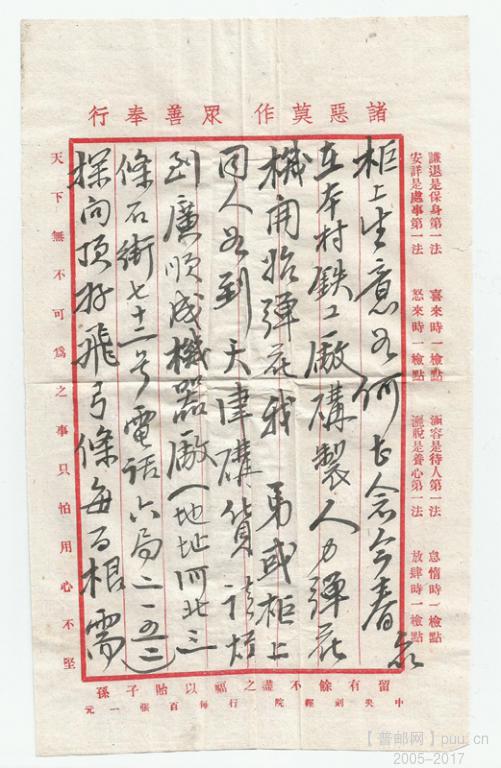 諸惡莫作 眾善奉行
謙退是保身第一法 喜來時一檢點 涵容是待人第一法 怠惰時一檢點
安詳是處事第一法 怒來時一檢點 灑脫是養心第一法 放肆時一檢點
柜上生意如何甚念今春
在本村鉄工廠購製人力彈花
機開始彈花我 弟或柜上
同人如到天津購貨請
到廣順成機器廠(地址河北三
條石街七十二号電話六局二一五二)
探向頂好飛弓條每百根需
天下無不可為之事只怕用心不堅
留有餘不盡之福以貽子孫
中央刻經院行每百張一元
【普邮网】puu.cn
2005-2017